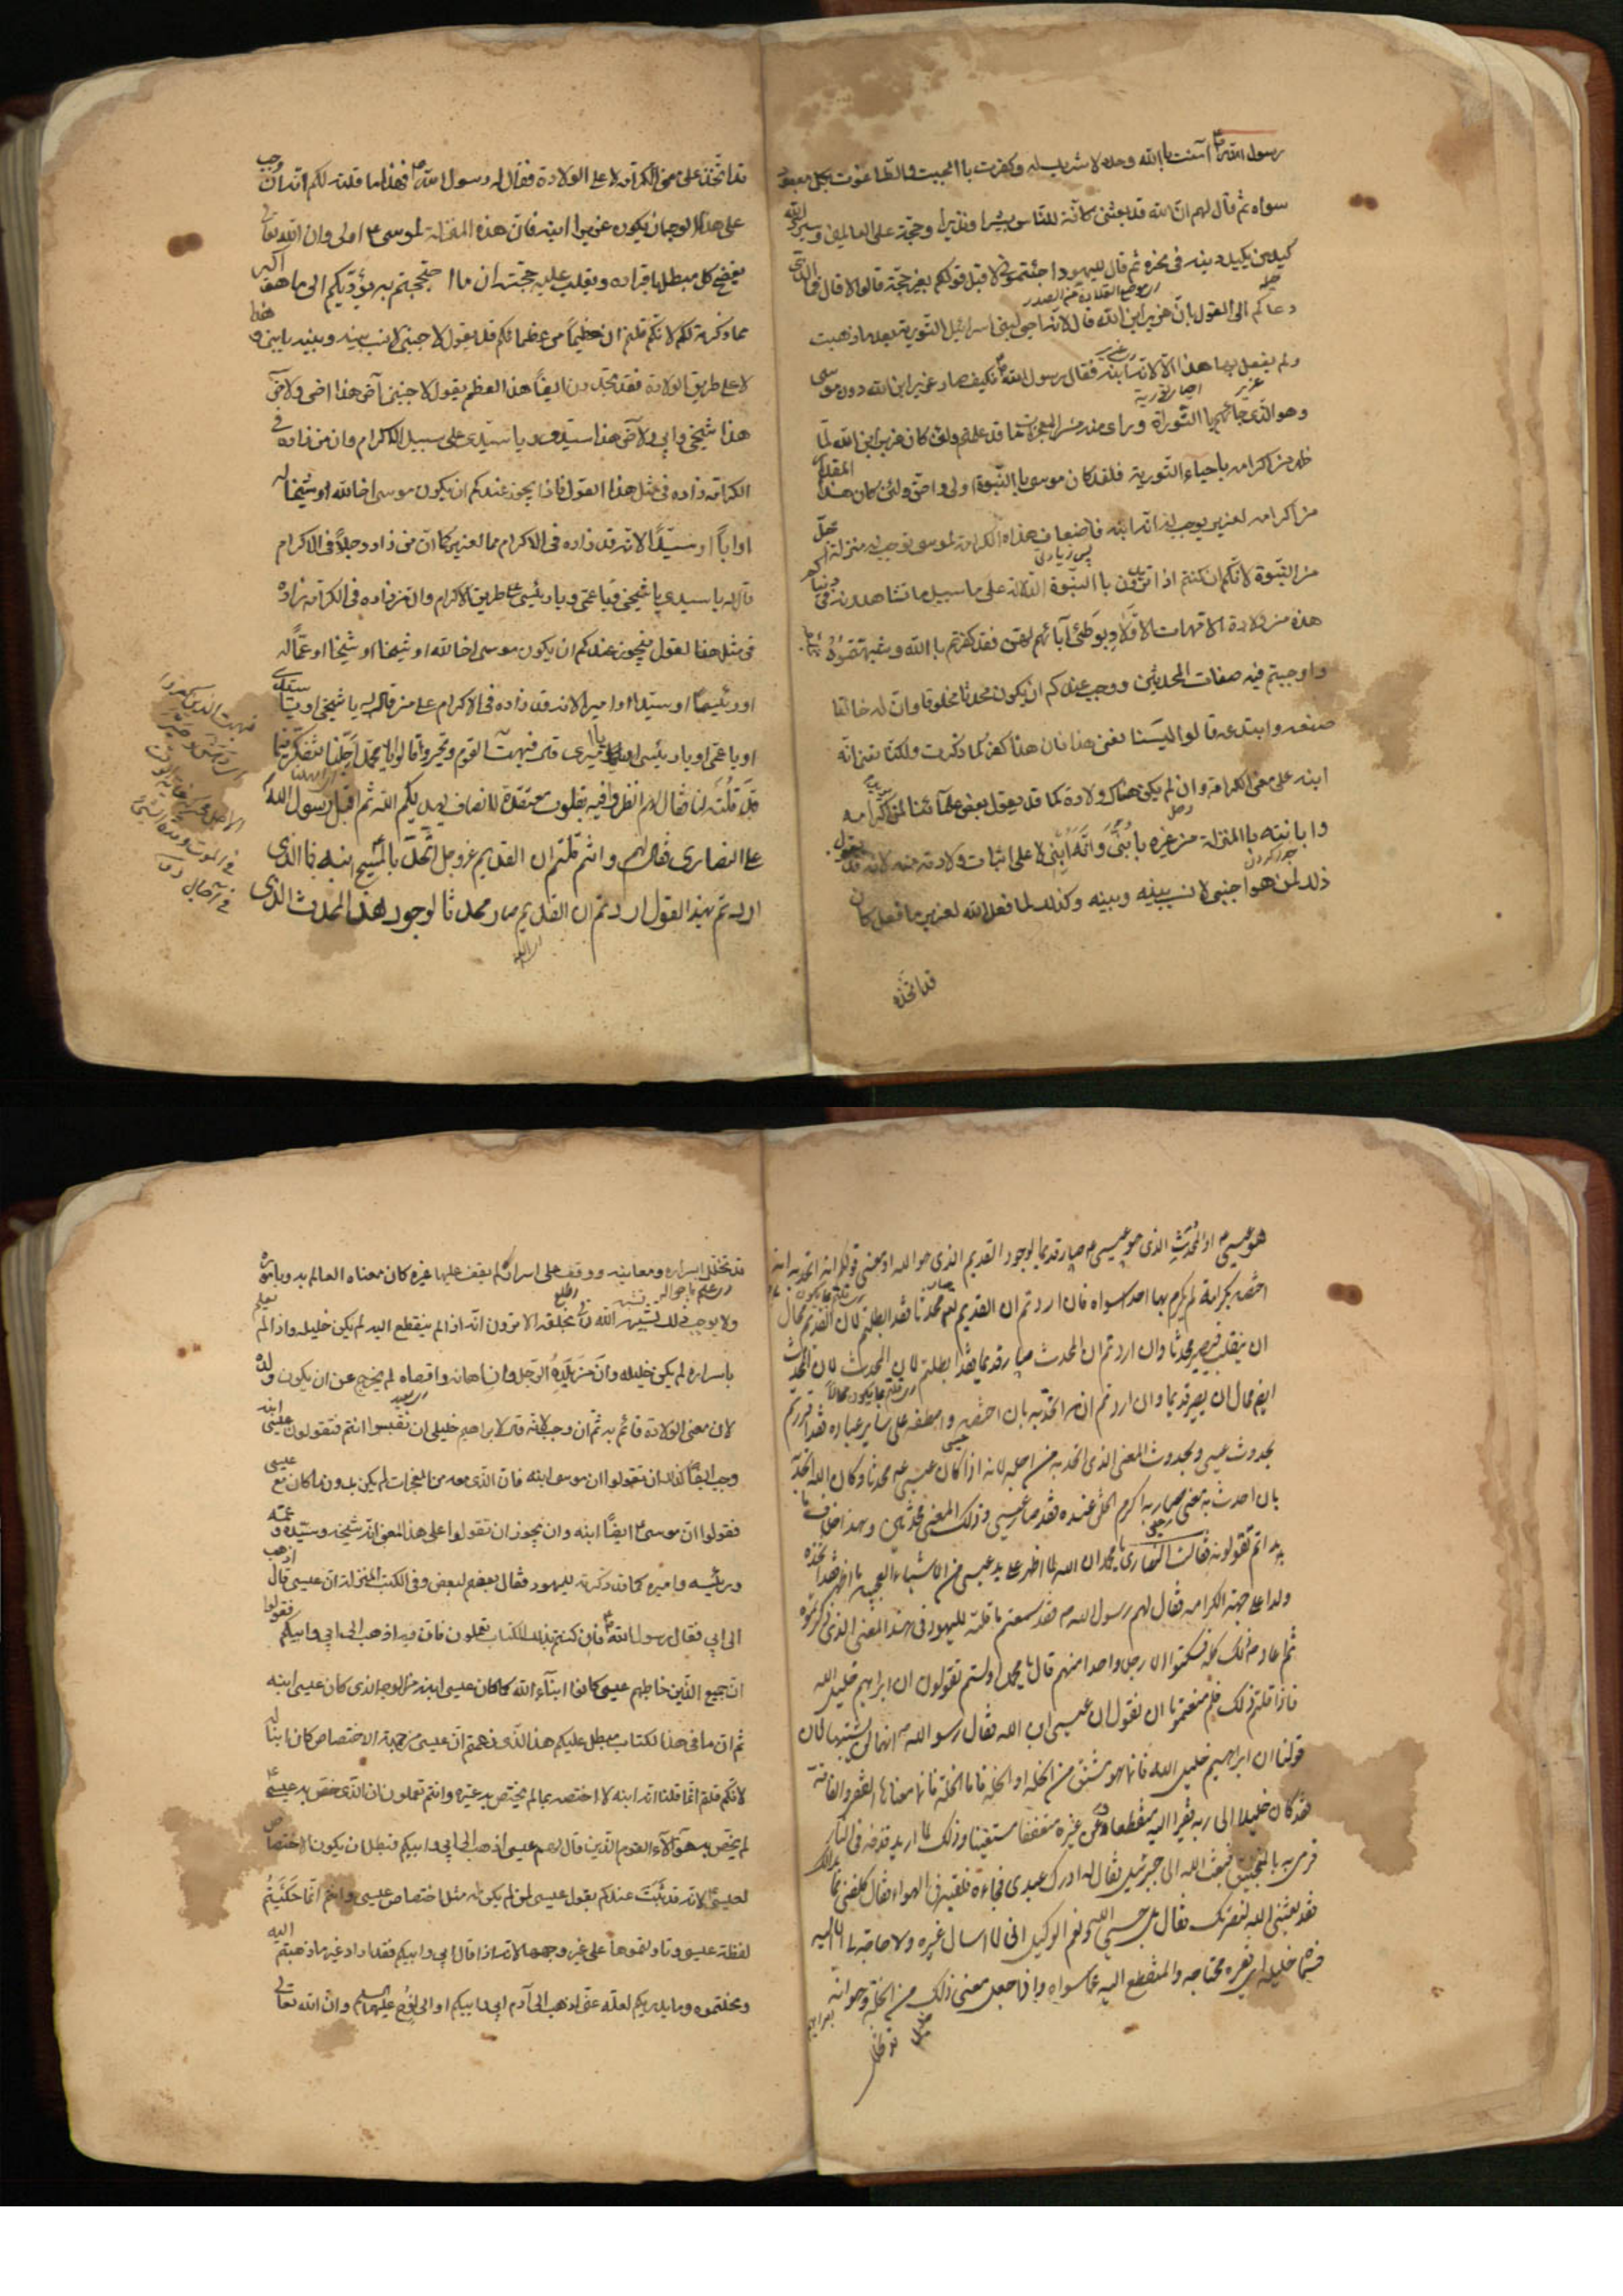 رسول الله ص آمنت باالله وحده لا شريك له وكفرت باالجبت والطاغوت بكل معبود
سواه ثم قال لهم ان الله قد بعثنى كافة للناس بشيرا ونذيرا وحجة على العالمين وسيرد الله
كيد من يكيد دينه فى نحره ثم قال لليهود اجئتمونى لاقبل قولكم بغير حجة قالوا لا قال فما الذى
دعاكم الى القول بان عزير ابن الله قالوا لانه احيى لبنى اسرائيل التورية بعد ما ذهبت
ولم يفعل بها هذا الا لانه ابنه فقال رسول الله ص فكيف صار عزير ابن الله دون موسى
وهو الذى جائهم باالتوراة وراى منه من المعجزات ما قد علمتم ولئن كان عزير ابن الله لما
ظهر من اكرامه باحياء التورية فلقد كان موسى باالنبوة اولى واحق ولئن كان هذا المقدار
من اكرامه لعزير يوجب له انه ابنه فاضعاف هذه الكرامة لموسى توجب له منزلة اجل
من النبوة لانكم ان كنتم اذا تريدون باالنبوة الدلالة على ما سبيل ما تشاهدونه فى دنياكم
هذه من ولادة الامهات الاولاد بوطئ آبائهم لهن فقد كفرتم باالله وشبهتموه
واوجبتم فيه صفات المحدثين ووجب عندكم ان يكون محدثا مخلوقا وان له خالقا
صنعه وابتدعه قالوا ليسنا نعنى هذا فان هذا كفر كما ذكرت ولكنا نعنى انه
ابنه على معنى الكرامة وان لم يكن هناك ولادة كما قد يقول بعض علمآئنا لمن يريد اكرامه
وابانته باالمنزلة من غيره يا بنى وانه ابنى لا على اثبات ولادته منه لانه قد يقول
ذلك لمن هو اجنبى لا نسب بينه وبينه وكذلك لما فعل الله لعزير ما فعل كان
قد اتخذه
قد اتخذه على معنى الكرامة لا على الولادة فقال له رسول الله ص فهذا ما قلته لكم انه ان وجب
على هذا الوجه ان يكون عزير ابنه فان هذه المنزلة لموسى ع اولى وان الله تعالى
يفضح كل مبطل باقراره ويقلب عليه حجته ان ما احتججتم به يؤديكم الى ما هو اكبر
مما ذكرته لكم لانكم قلتم ان عظيماً من عظمائكم قد يقول لاجنبى لا نسب بينه وبينه يا بنى وهذا ابنى
لا على طريق الولادة فقد تجدون ايضاً هذا العظيم يقول لاجنبى آخر هذا اخى ولآخر
هذا شيخى وابى ولآخر هذا سيدى ويا سيدى على سبيل الاكرام وان من زاده فى
الكرامة زاده فى مثل هذا القول فاذا يجوز عندكم ان يكون موسى اخا لله او شيخا له
او اباً او سيّداً لانه قد زاده فى الاكرام مما لعزير كما ان من زاد رجلاً فى الاكرام
قال له يا سيدى يا شيخى ويا عمى ويا رئيسى على طريق الاكرام وان من زاده فى الكرامة زاده
فى مثل هذا القول فيجوز عندكم ان يكون موسى اخا لله او شيخا او شيخا او عمّاً له
او رئيساً او سيّداً او اميرا لانه قد زاده فى الاكرام على من قال له يا شيخى او يا سيدى
او يا عمى او يا رئيسى او يا اميرى قال فبهت القوم وتحيروا وقالوا يا محمد اجّلنا نتفكر فيما
قد قلته لنا فقال لهم انظروا فيه بقلوب معتقدة للانصاف يهديكم الله ثم اقبل رسول الله
على النصارى فقال لهم وانتم قلتم ان القديم عز وجل اتحد بالمسيح ابنه فما الذى
اردتم بهذا القول اردتم ان القديم صار محدثا لوجود هذا المحدث الذى
هو عيسى ع او المحدث الذى هو عيسى ع صار قديما لوجود القديم الذى هو الله او معنى قولكم انه اتحد به انه
اختصه بكرامة لم يكرم بها احد سواه فان اردتم ان القديم صار محدثا فقد ابطلتم لان القديم محال
ان ينقلب فيصير محدثا وان اردتم ان المحدث صار قديما فقد ابطلتم لان المحدث
ايضا محال ان يصير قديما وان اردتم انه اتحد به بان اختصه واصطفه على ساير عباده فقد اقررتم
بحدوث عيسى وبحدوث المعنى الذى اتحد به من اجله لانه اذا كان عيسى ع محدثا وكان الله اتحد به
بان احدث به معنى صار به اكرم الخلق عنده فقد صار عيسى وذلك المعنى محدثين وهذا خلاف ما
بداتم تقولونه فقالت النصارى يا محمد ان الله لما اظهر على يد عيسى من الاشياء العجيبة ما اظهر فقد اتخذه
ولدا على جهة الكرامة فقال لهم رسول الله ص فقد سمعتم ما قلته لليهود فى هذا المعنى الذى ذكرتموه
ثم اعاد ع ذلك كله فسكتوا الا رجلا واحدا منهم قال يا محمد اولستم تقولون ان ابراهيم خليل الله
فاذا قلتم ذلك فلم منعتمونا ان نقول ان عيسى ابن الله فقال رسول الله ص انهما لن يشتبها لان
قولنا ان ابراهيم خليل الله فانما هو مشتق من الخلة او الخلة فاما الخلة فانما معناها الفقر والفاقة
فقد كان خليلا الى ربه فقيرا اليه منقطعا وعن غيره متعففا مستغنيا وذلك لما اريد قذفه فى النار
فرمى به بالمنجنيق فبعث الله الى جبرئيل فقال له ادرك عبدى فجاءه فلقيه فى الهواء فقال كلفنى ما بدا لك
فقد بعثنى الله لنصرتك فقال بل حسبى الله ونعم الوكيل انى لا اسال غيره ولا حاجة لى الا اليه
فسماه خليله اى فقيره محتاجه والمنقطع اليه عما سواه واذا جعل معنى ذلك من الخلة وهو انه
قد تخلل اسراره ومعانيه ووقف على اسرار لم يقف عليها غيره كان معناه العالم به وباموره
ولا يوجب ذلك تشبيه الله تعالى بخلقه الا ترون انه اذا لم ينقطع اليه لم يكن خليله واذا لم يعلم
باسراره لم يكن خليله وان من يلده الرجل وان اهانه واقصاه لم يخرج عن ان يكون ولده
لان معنى الولادة قائم به ثم ان وجب لانه قال لابراهيم خليلى ان تقيسوا انتم فتقولون عيسى ابنه
وجب ايضا كذلك ان تقولوا ان موسى ابنه فان الذى معه من المعجزات لم يكن بدون ما كان مع عيسى
فقولوا ان موسى ع ايضاً ابنه وان يجوز ان تقولوا على هذا المعنى انه شيخه وسيّده وعمّه
ورئيسه واميره كما قد ذكرته لليهود فقال بعضهم لبعض وفى الكتب المنزلة ان عيسى قال اذهب
الى ابى فقال رسول الله ص فان كنتم بذلك الكتاب تعملون فان فيه اذهب الى ابى وابيكم فقولوا
ان جميع الذين خاطبهم عيسى كانوا ابنآء الله كما كان عيسى ابنه من الوجه الذى كان عيسى ابنه
ثم ان ما فى هذا الكتاب مبطل عليكم هذا الذى زعمتم ان عيسى من جهة الاختصاص كان ابنا له
لانكم قلتم انما قلنا انه ابنه لا اختصه بما لم يختص به غيره وانتم تعلمون ان الذى خص به عيسى ع
لم يخص به هؤلآء القوم الذين قال لهم عيسى اذهب الى ابى وابيكم فبطل ان يكون الاختصاص
لعيسى ع لانه قد ثبت عندكم بقول عيسى لمن لم يكن له مثل اختصاص عيسى وانتم انما حكيتم
لفظة عيسى وتاولتموها على غير وجهها لانه اذا قال ابى وابيكم فقد اراد غير ما ذهبتم اليه
ونحلتموه وما يدريكم لعله عنى اذهب الى آدم ابى وابيكم او الى نوح عليهما السلم وان الله تعالى